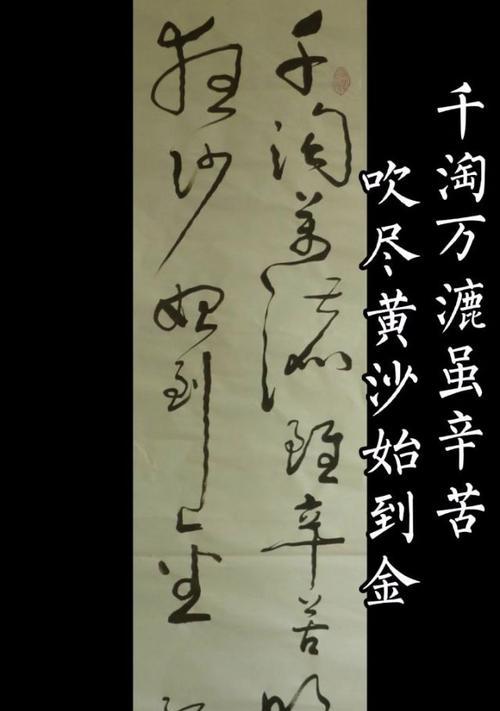 千淘万漉虽辛苦
吹尽黄沙始到金
千淘萬漉雖辛苦
狂沙始到金